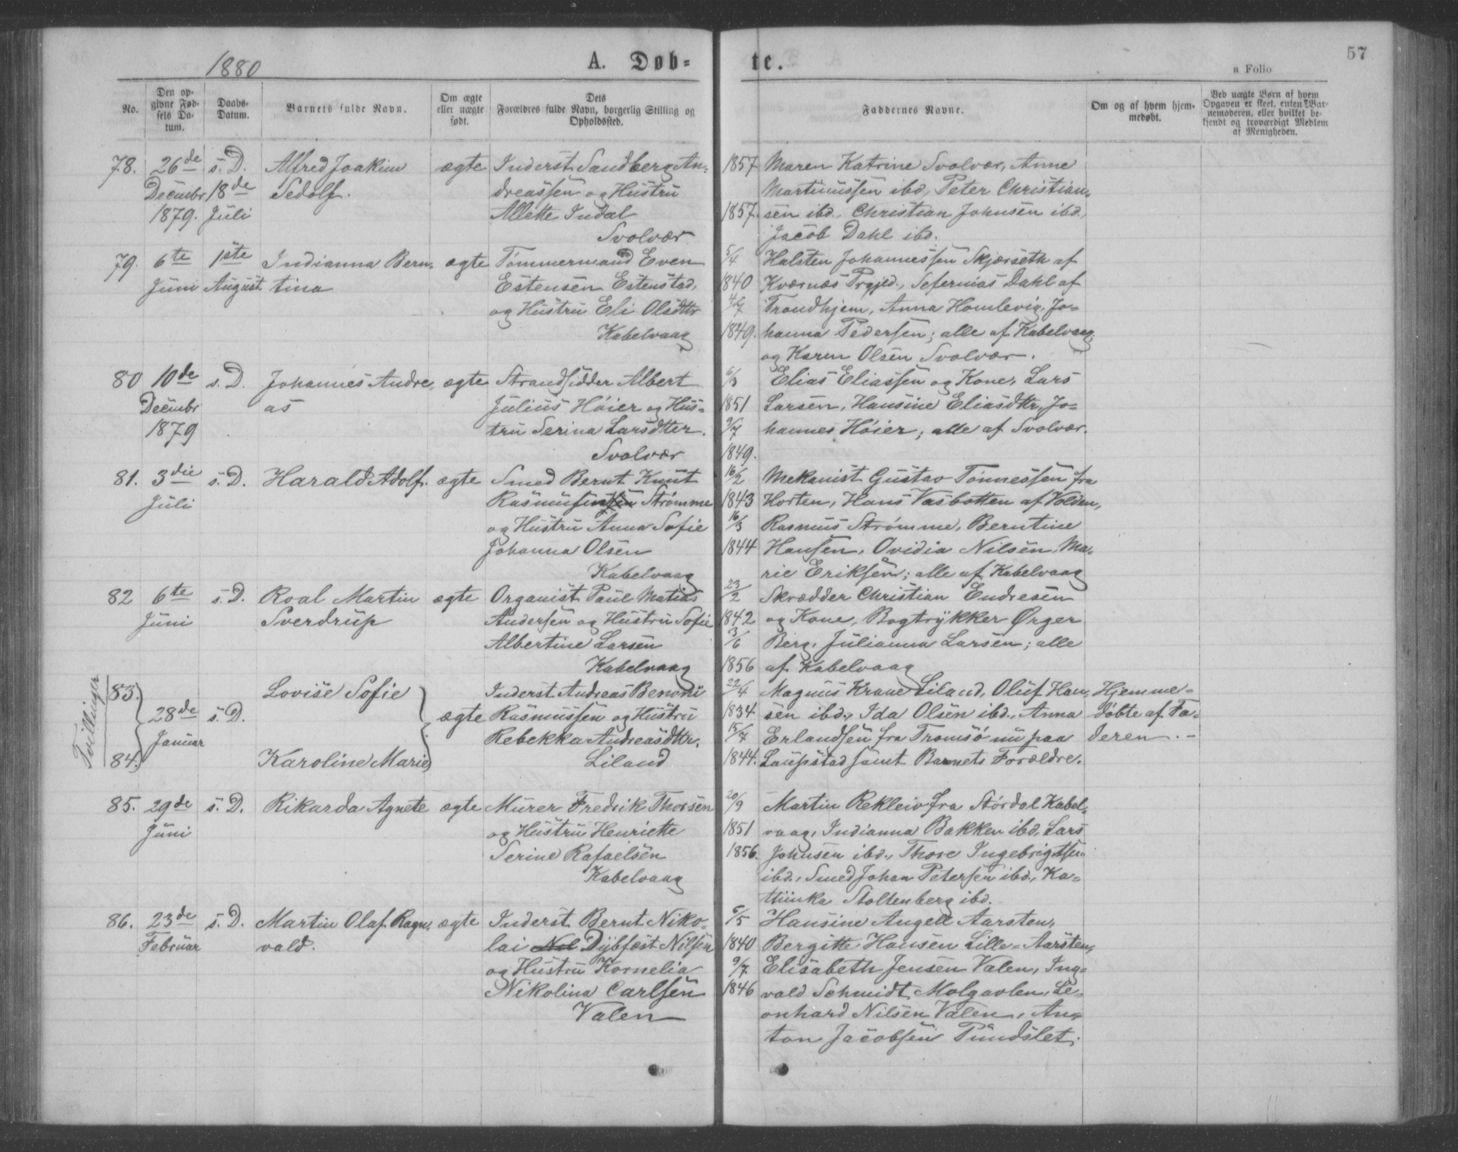 1880
A. Døb=
te.
57
a Folio
No.
Den op-
givne Fød-
sels Da-
tum.
Daabs-
Datum.
Barnets fulde Navn.
Om ægte
eller uægte
født.
Dets
Forældres fulde Navn, borgerlig Stilling og
Opholdssted.
Faddernes Navne.
Om og af hvem hjem-
medøbt.
Ved uægte Børn af hvem
Opgaven er skeet, enten Bar-
nemoderen, eller hvilket be-
kjendt og troværdigt Medlem
af Menigheden.
78.
26de
Decembr
1879.
s. D.
18de
Juli
Alfred Joakim
Sedolf.
ægte
Inderst Sandberg An-
dreassen og Hustru
Allette Indal
Svolvær
1857
1857.
Maren Katrine Svolvær, Anne
Martinussen ibd, Peter Christian-
sen ibd. Christian Johnsen ibd,
Jacob Dahl ibd.
79.
6te
Juni
1ste
August
Indianna Bern-
tina
ægte
Tømmermand Even
Estensen Estenstad,
og Hustru Eli Olsdttr
Kabelvaag
5/4
1840
4/9
1849.
Halsten Johannessen Skjærseth af
Kværnæs Prgjld, Sefernias Dahl af
Trondhjem, Anna Homlevig, Jo-
hanna Pedersen; alle af Kabelvaag,
og Karen Olsen Svolvær.
80
10de
Decembr
1879
s. D.
Johannes Andre-
as
ægte
Strandsidder Albert
Julius Høier og Hus-
tru Serina Larsdtter.
Svolvær
6/3
1851
9/7
1849.
Elias Eliassen og Kone, Lars
Larsen, Hansine Eliasdttr, Jo-
hannes Høier; alle af Svolvær.
81.
3die
Juli
s. D.
Harald Adolf.
ægte
Smed Bernt Knut
Rasmussen Strømme
og Hustru Anna Sofie
Johanna Olsen
Kabelvaag
16/2
1843
16/3
1844
Mekanist Gustav Tønnessen fra
Horten, Hans Vasbotten af Volden,
Rasmus Strømme, Berntine
Hansen, Ovidia Nilsen, Ma-
rie Eriksen; alle af Kabelvaag
82
6te
Juni
s. D.
Roal Martin
Sverdrup
ægte
Organist Paul Matias
Andersen og Hustru Sofie
Albertine Larsen
Kabelvaag
23/2
1842
3/6
1856
Skrædder Christian Endresen
og Kone, Bogtrykker Ørger
Berg, Julianna Larsen; alle
af Kabelvaag
Tvillinger
83.
84.
28de
Januar
s. D.
Lovise Sofie
Karoline Marie
ægte
Inderst Andreas Benoni
Rasmussen og Hustru
Rebekka Andreasdttr.
Liland
22/4
1834
15/7
1844.
Magnus Krane Liland, Oluf Han-
sen ibd, Ida Olsen ibd, Anna
Erlandsen fra Tromsø nu paa
Laupstad samt Barnets Forældre.
Hjemme-
døbte af Fa-
deren.-
85.
29de
Juni
s. D.
Rikarda Agnete
ægte
Murer Fredrik Thorsen
og Hustru Henriette
Serine Rafaelsen
Kabelvaag
20/9
1851
1856.
Martin Rekleiv fra Stördal Kabel-
vaag, Indianna Bakken ibd, Lars
Johnsen ibd, Thore Ingebrigtsen
ibd, Smed Johan Petersen ibd, Ka-
thinka Stoltenberg ibd.
86.
23de
Februar
s. D.
Martin Olaf Ragn-
vald.
ægte
Inderst Bernt Niko-
lai Nil Dybfest Nilsen
og Hustru Kornelia
Nikolina Carlsen
Valen
5/5
1840
9/7
1846
Hansine Angell Aarsten,
Bergitte Hansen Lille-Aarsten,
Elisabeth Jensen Valen, Ing-
vald Schmidt Molgavlen, Le-
onhard Nilsen Valen, An-
ton Jacobsen Pundslet.